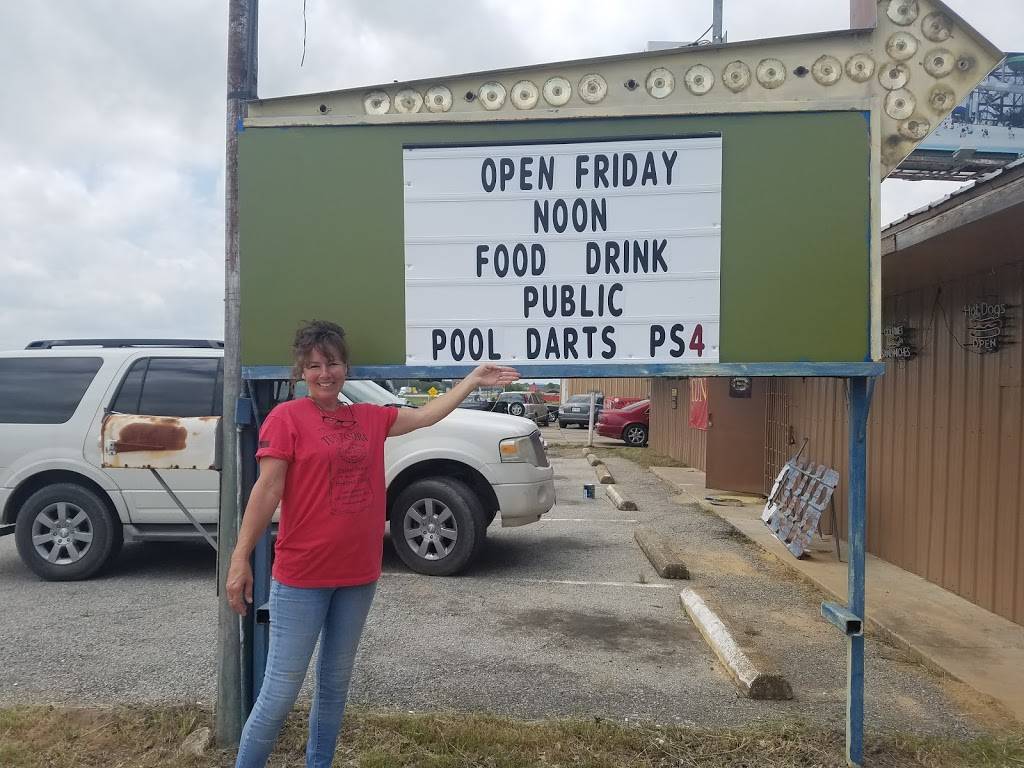 OPEN FRIDAY
NOON
FOOD DRINK
PUBLIC
POOL DARTS PS4
Hot Dogs
OPEN